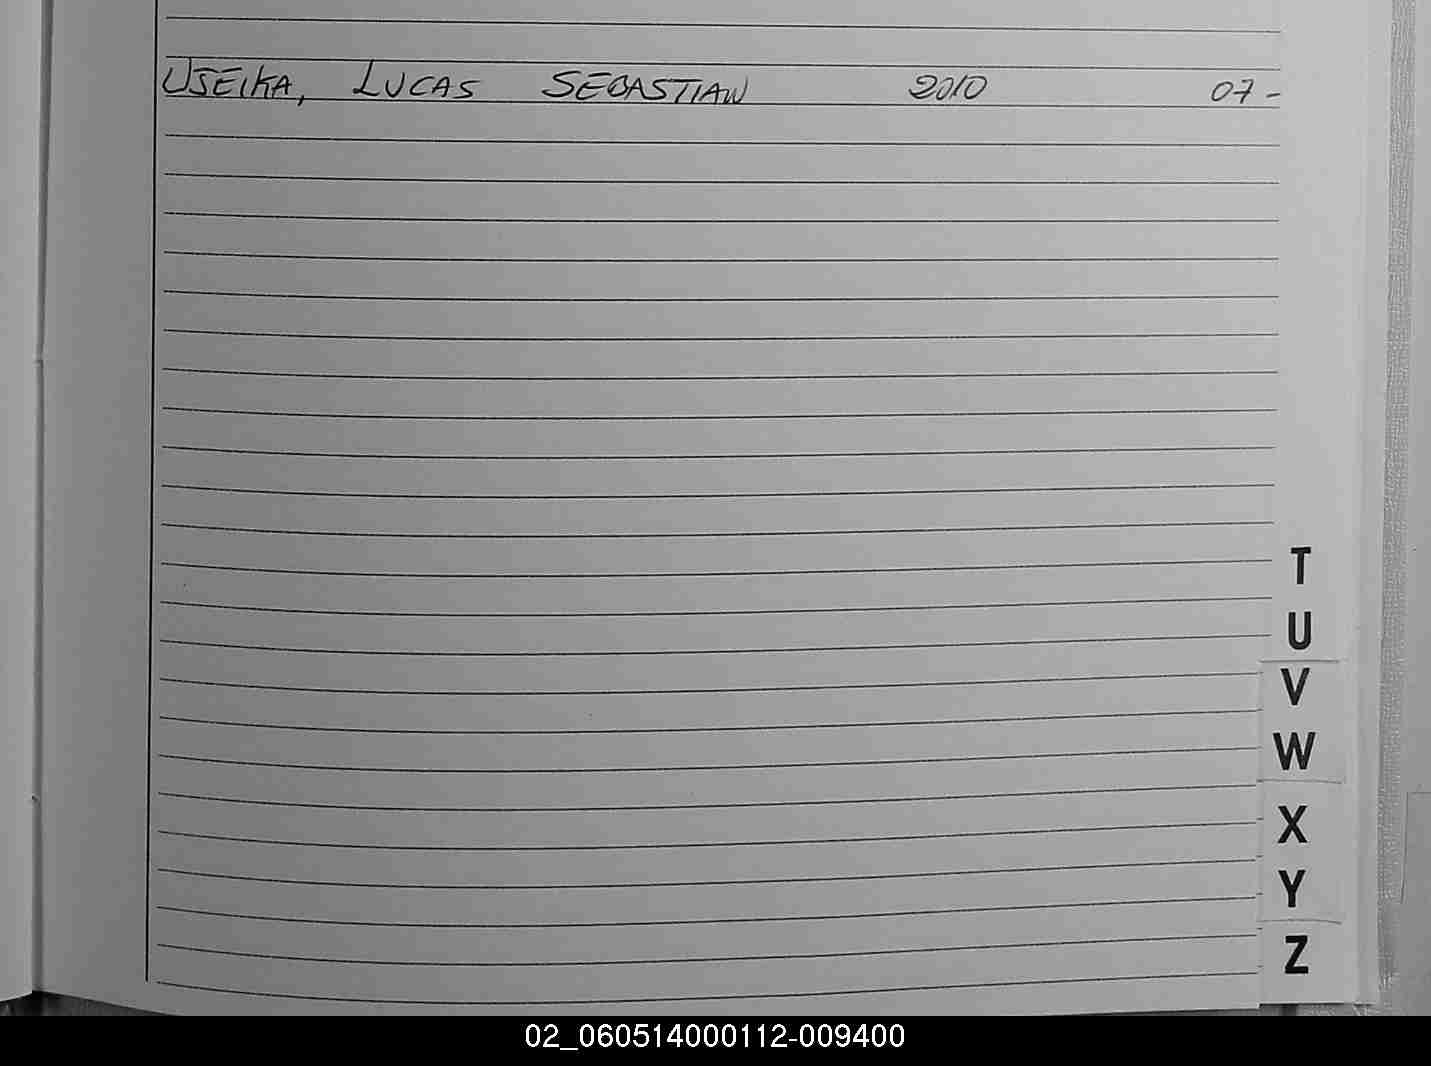 USEIKA, LUCAS SEBASTIAN 2010 07-
T
U
V
W
X
Y
Z
02_060514000112-009400